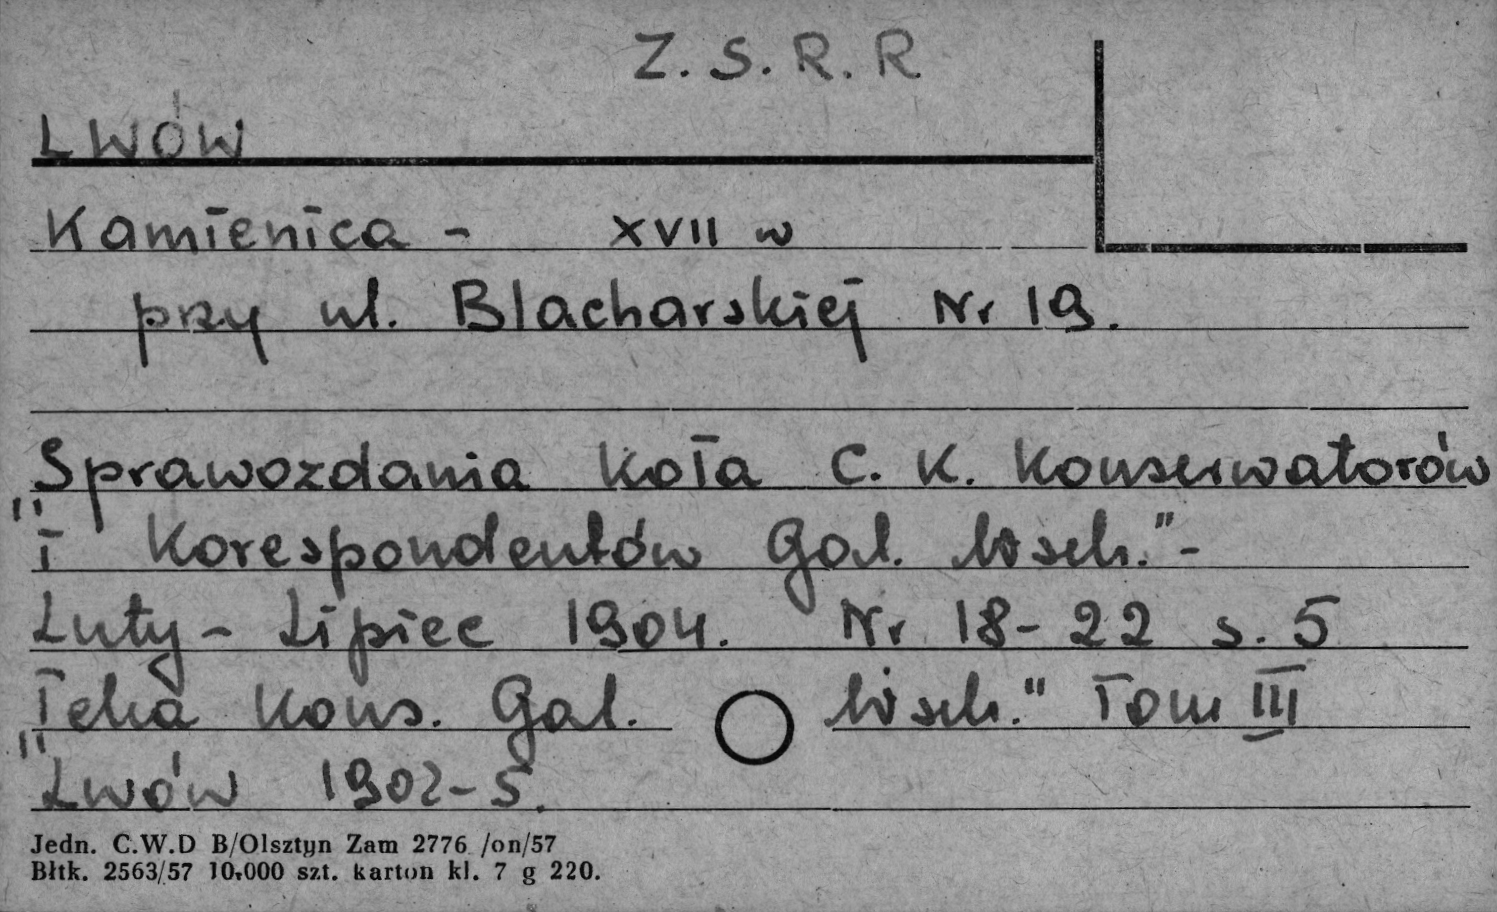 Z. S. R. R
LWÓW
Kamienica - XVII w
przy ul. Blacharskiej Nr 19.
Sprawozdania Koła C. K. Konserwatorów
" i Korespondentów Gal. Wsch." -
Luty - Lipiec 1904. Nr 18 - 22 s. 5
Teka Kons. Gal. Wsch." Tom III
" Lwów 1902 - 5.
Jedn. C.W.D B/Olsztyn Zam 2776 /on/57
Błtk. 2563/57 10.000 szt. karton kl. 7 g 220.